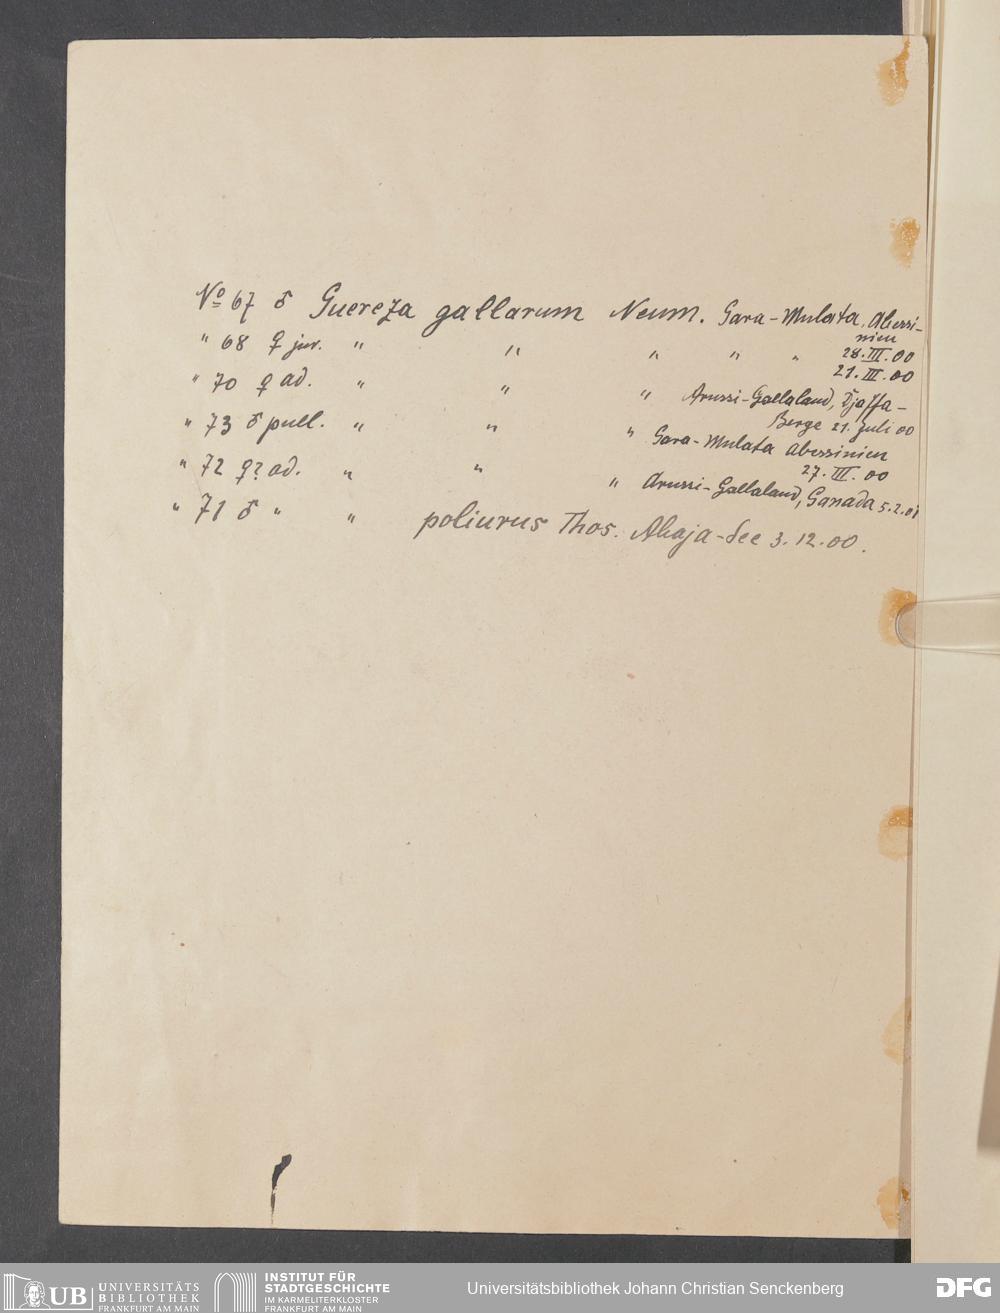 No 67 ♂ Guereza gallarum Neum. Gara-Mulata, Abessi-
nien
28.III.00
" 68 ♀ juv. " " " " "
21.III.00
" 70 ♀ ad. " " " Arussi-Gallaland, Djaffa-
Berge 21. Juli 00
" 73 ♂ pull. " " " Gara-Mulata Abessinien
27.III.00
" 72 ♀? ad. " " " Arussi-Gallaland, Ganada 5.2.01
" 71 ♂ " " poliurus Thos. Abaja-See 3.12.00.
UB UNIVERSITÄTS
BIBLIOTHEK
FRANKFURT AM MAIN
INSTITUT FÜR
STADTGESCHICHTE
IM KARMELITERKLOSTER
FRANKFURT AM MAIN
Universitätsbibliothek Johann Christian Senckenberg
DFG